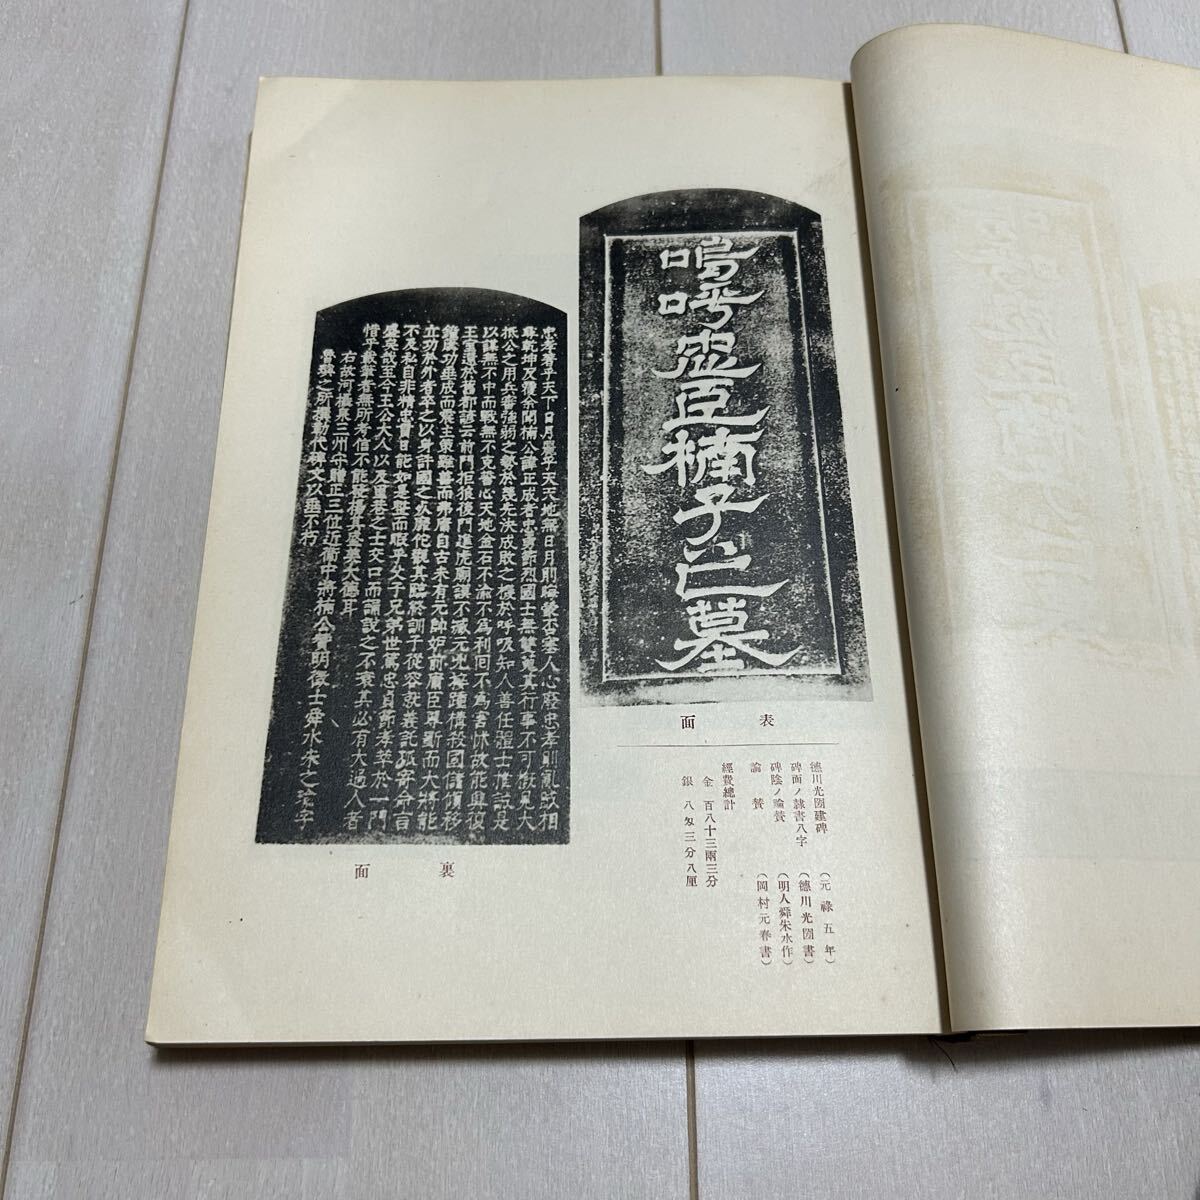 嗚呼忠臣楠子之墓
表面
德川光圀建碑 (元祿五年)
碑面ノ隸書八字 (德川光圀書)
碑陰ノ論贊 (明人舜朱水作)
論贊 (岡村元春書)
經費總計
金 百八十三兩三分
銀 八匁三分八厘
忠孝著乎天下日月麗乎天天地無日月則晦蒙否塞人心廢忠孝則亂賊相
尋乾坤反覆余聞楠公諱正成者忠勇節烈國士無雙蒐其行事不可概見大
抵公之用兵審強弱之勢於幾先決成敗之機於呼吸知人善任體士推誠是
以謀無不中而戰無不克誓心天地金石不渝不為利回不為害怵故能興復
王室還於舊都諺云前門拒狼後門進虎廟謨不臧元兇接踵構殺國儲傾移
鐘簴功垂成而震主策雖善而弗庸自古未有元帥妒前庸臣專斷而大將能
立功於外者卒之以身許國之死靡佗觀其臨終訓子從容就義託孤寄命言
不及私自非精忠貫日能如是整而暇乎父子兄弟世篤忠貞節孝萃於一門
盛矣哉至今王公大人以及里巷之士交口而誦說之不衰其必有大過人者
惜乎載筆者無所考信不能發揚其盛美大德耳
右故河攝泉三州守贈正三位近衛中將楠公贊明徵士舜水朱之瑜字
魯璵之所撰勒代碑文以垂不朽
裏面